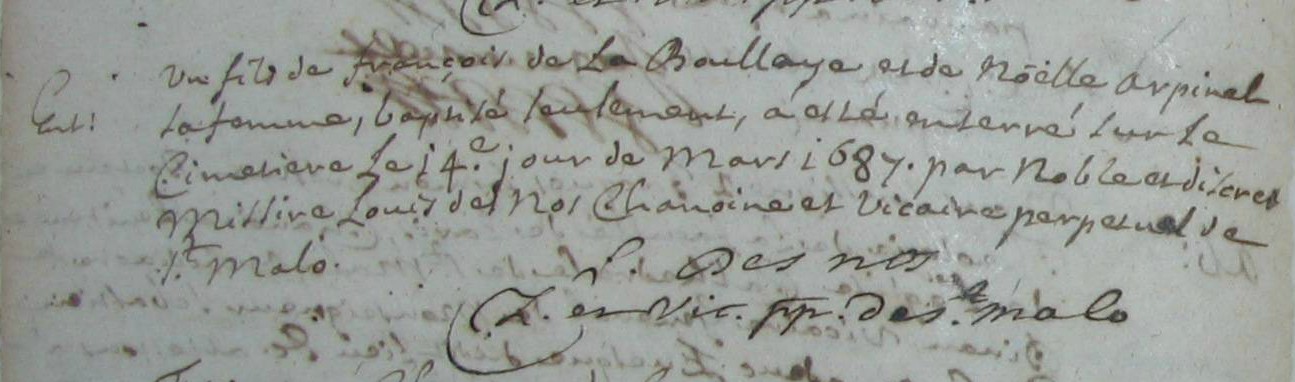 Ent:
Un fils de françois de La Boullaye et de Nöelle Arpinel
sa femme, baptisé seulement, a esté enterré sur Le
Cimetiere Le 14.e jour de Mars 1687. par Noble et discret
Missire Louis des Nos Chanoine et Vicaire perpetuel de
St. Malo.
L. Des nos
C. et Vic. pp. de St. malo